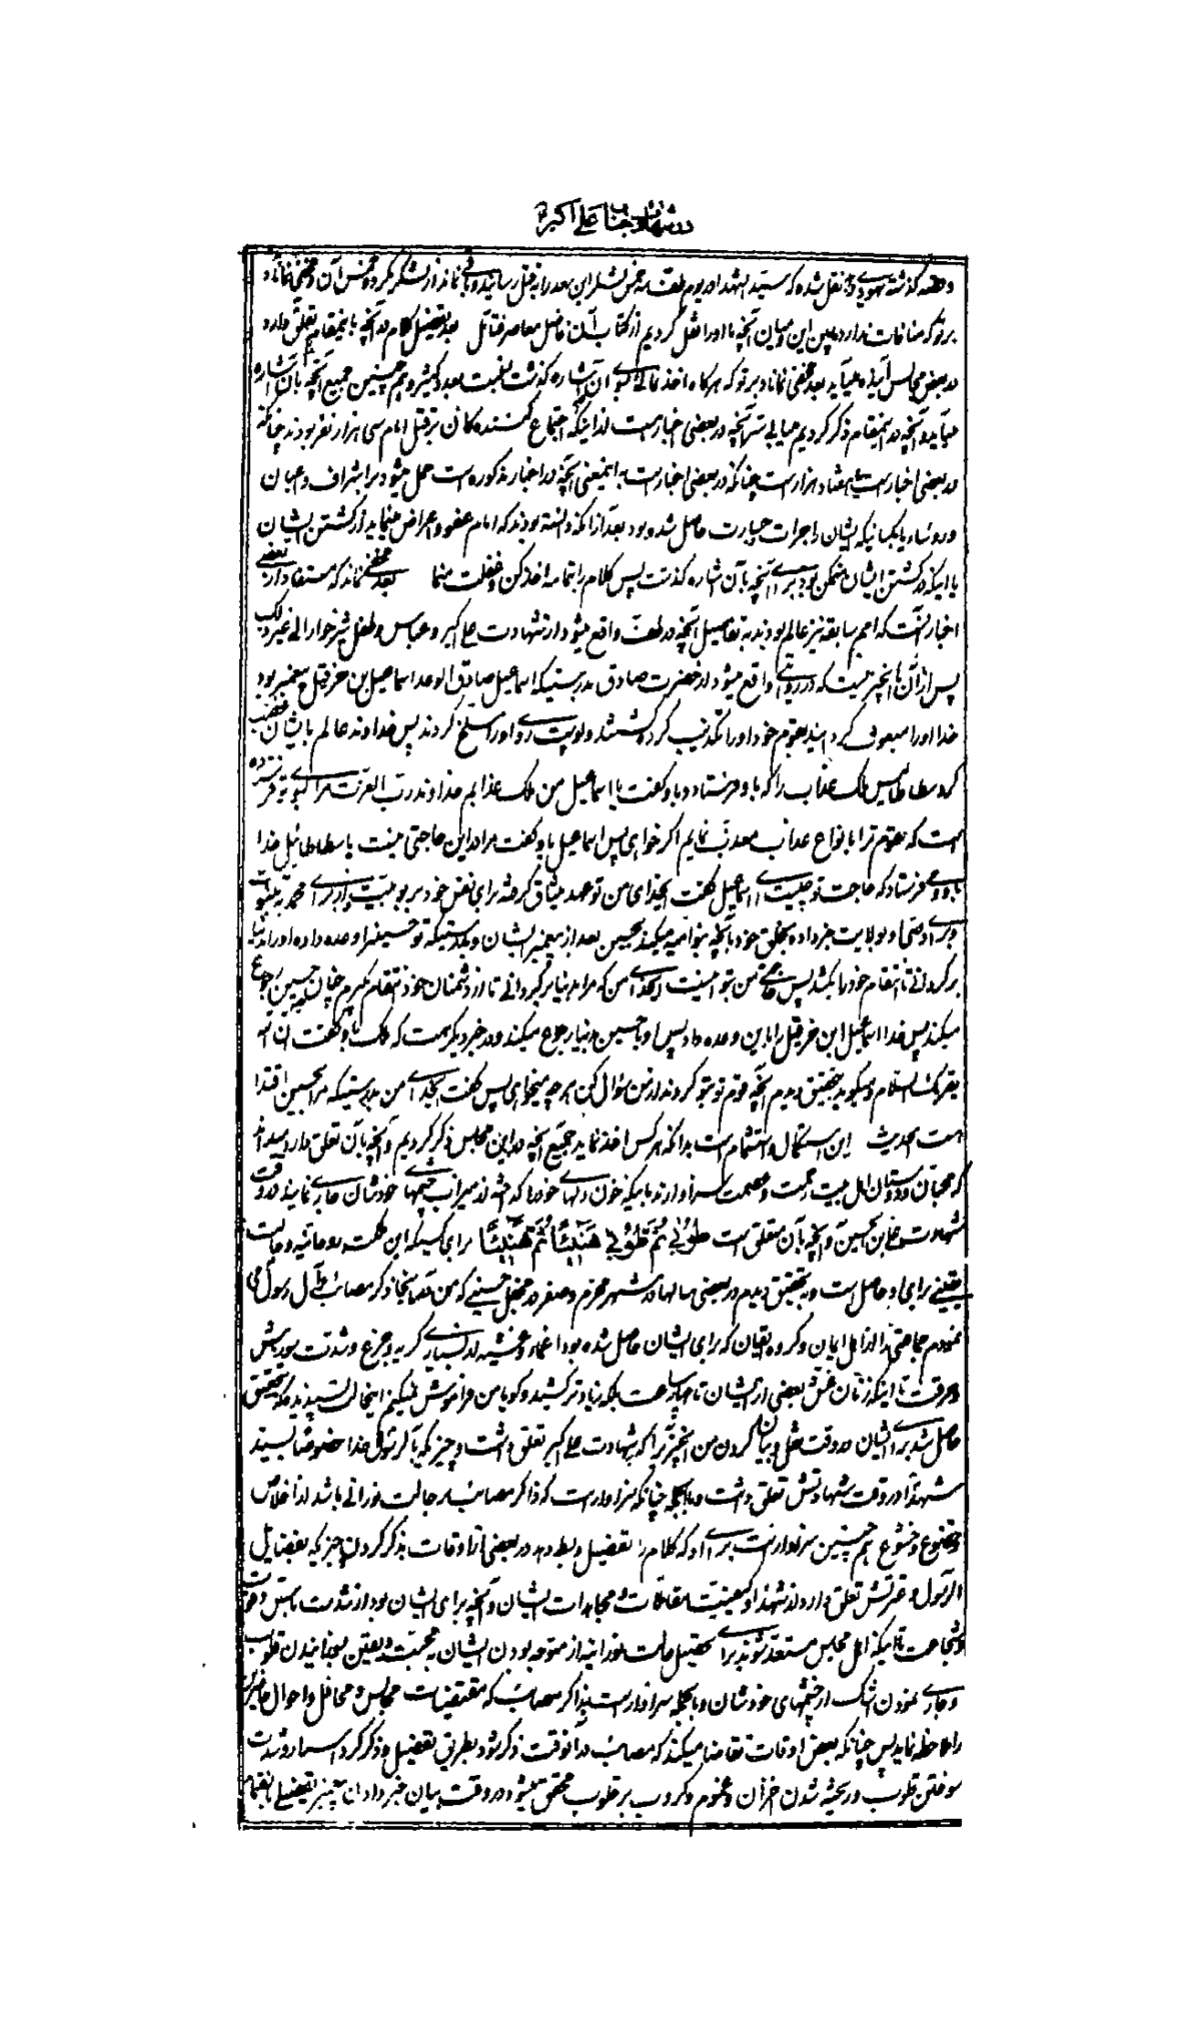 در شهادت جناب علی اکبر
گذشته نقل شده که سید الشهدا در یوم لشکر ابن سعد را بقتل رسانید
بر تو که منافات ندارد مابین این و میان آنچه ما او را نقل کردیم از کتاب آن فاضل معاصر فتأمّل بعد تفصیل کلام در آنچه باینمقام تعلق دارد
در بعض مجالس آینده میآید بعد مخفی نماند بر تو که هرگاه اخذ نمائی آن اشاره گذشت هم چنین جمیع آنچه بآن اشاره
میآید و آنچه در اینمقام ذکر کردیم میابی سر آنچه در بعضی اخبار است از اینکه اجتماع کنندهکان بر قتل امام سی هزار نفر بودند چنانکه
در بعضی اخبار است یا هفتاد هزار است چنانکه در بعضی اخبار است باینمعنی آنچه در اخبار مذکوره است حمل میشود بر اشراف و اعیان
و رؤساء یا بکسانیکه ایشان را جرات و جسارت حاصل شده بود بعد از آنکه دانسته بودند که امام عفو و اعراض مینماید از کشتن ایشان
با اینکه در کشتن ایشان متمکن بود برای آنچه بآن اشاره گذشت پس کلام را بتمامه اخذ کن و غفلت منما بعد مخفی نماند که مستفاد از بعضی
اخبار آنست که امم سابقه نیز عالم بودند به تفاصیل آنچه در طف واقع میشود از شهادت علی اکبر و عباس و طفل شیرخوار الی غیر ذلک
پس از آن خبریست که در روایتی واقع میشود از حضرت صادق بدرستیکه اسماعیل صادق الوعد اسماعیل بن حزقیل پیغمبر بود
خدا او را مبعوث گردانید بقوم خود او را تکذیب کرده کشتند و پوست روی او را سلخ کردند پس خداوند عالم بایشان غضب
کرد سطاطائیل ملک عذاب را که باو فرستاد و باو گفت یا اسماعیل من ملک عذابم خداوند رب العزت مرا بسوی تو فرستاده
است که بقوم ترا بانواع عذاب معذب نمایم اگر خواهی پس اسماعیل باو گفت مرا در این حاجتی نیست یا سطاطائیل خدا
باو وحی فرستاد که حاجت تو چیست ای اسماعیل گفت ای خدای من تو عهد و میثاق گرفته برای نفس خود بربوبیت و از برای محمد بنبوت
و برای اوصیا و بولایت خبر داده بخلق خود بآنچه بنو امیه میکنند بحسین بعد از پیغمبر ایشان و بدرستیکه تو حسین را وعده داده او را بدنیا
برگردانی تا انتقام خود را بکشد پس حاجت من بتو اینست ای خدای من که مرا بدنیا برگردانی تا از دشمنان خود انتقام گیرم چنانکه حسین رجوع
میکند پس خدا اسماعیل ابن حزقیل را باین وعده داد پس او با حسین بدنیا رجوع میکند و در خبر دیگر است که ملک باو گفت ان الله
یقرئک السلام و میگوید بتحقیق دیدم آنچه قوم تو بتو کردند از من سؤال کن هر چه میخواهی پس گفت ای خدای من بدرستیکه مرا بحسین اقتدا
است الحدیث این است بدانکه هر کس اخذ نماید جمیع آنچه در این مجلس ذکر کردیم و آنچه بآن تعلق دارد میداند
که محبان و دوستان اهل بیت رحمت و عصمت سزاوارند باینکه خون دلهای خود را که از میزاب چشمهای خودشان جاری نمایند در وقت
شهادت علی بن الحسین و آنچه بآن متعلق است طُوبی ثُمَّ طُوبی هَنیئاً ثُمَّ هَنیئاً برای کسیکه این روحانیه و حالت
یقینی برای او حاصل است و بتحقیق دیدم در بعضی سالها در شهر محرم و صفر در محفل حسینی که من در آنجا ذکر مصائب آل رسول می
نمودم جماعتی را از اهل ایمان و گروه ایقان که برای ایشان حاصل شده بود اغماء و غشیه از بسیاری گریه و جزع و شدت سوزش
و حرقت تا اینکه زمان غش بعضی از ایشان تا چهار ساعت بلکه زیادتر کشید و گویا من فراموش نمیکنم
حاصل شد برای ایشان در وقت نقل و بیان کردن من آنچیزی را که بشهادت علی اکبر تعلق داشت و چیزیکه بآل رسول خدا خصوصاً بسید
شهدا در وقت شهادتش تعلق داشت و بالجمله چنانکه سزاوار است که ذاکر مصائب بر حالت نورانی باشد از اخلاص
و خضوع و خشوع هم چنین سزاوار است برای او که کلام را تفصیل و بسط دهد در بعضی از اوقات بذکر کردن چیزیکه بفضایل
آل رسول و عترتش تعلق دارد و از شهدا و کیفیت مقاتلات و مجاهدات ایشان و آنچه برای ایشان بود از شدت
و شجاعت تا اینکه اهل مجلس مستعد شوند برای تحصیل حالت نورانیه از متوجه بودن ایشان به محبت و یقین و سوزانیدن قلوب
و جاری نمودن اشک از چشمهای خودشان و بالجمله سزاوار است بذاکر مصائب که مقتضیات مجالس و محافل و احوال حاضرین
را ملاحظه نماید پس چنانکه بعض اوقات تقاضا میکند که مصائب در آنوقت ذکر شود بطریق تفصیل و ذکر کردن اسرار و شدت
سوختن قلوب و ریخته شدن احزان و غموم و کروب بر قلوب محقق میشود در وقت بیان خبر دادن پیغمبر تفضیلی